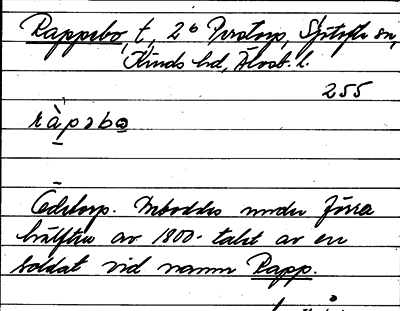 Rappebo, t, 2⁰ Perstorp, Spetofta sn,
Kinds hd, Älvsb. l.
255
ràpəbo
Ödetorp. Beboddes under förra
hälften av 1800-talet av en
soldat vid namn Rapp.